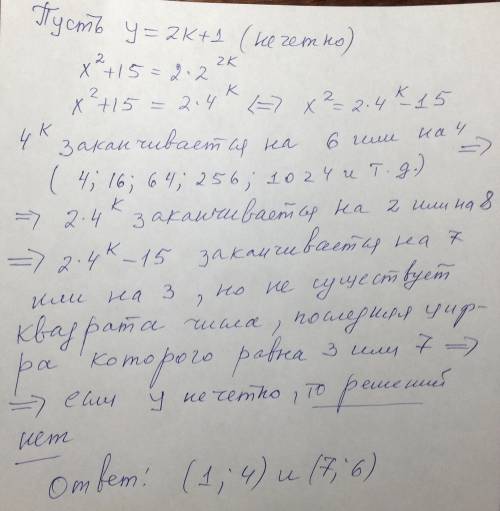 Пусть y = 2k+1 (нечетно)
x² + 15 = 2·2²ᵏ
x² + 15 = 2·4ᵏ <=> x² = 2·4ᵏ - 15
4ᵏ заканчивается на 6 или на 4 =>
(4; 16; 64; 256; 1024 и т.д.)
=> 2·4ᵏ заканчивается на 2 или на 8
=> 2·4ᵏ - 15 заканчивается на 7
или на 3, но не существует
квадрата числа, последняя циф-
ра которого равна 3 или 7 =>
=> если y нечетно, то решений
нет
Ответ: (1; 4) и (7; 6)